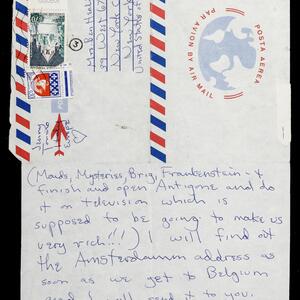 POSTA AEREA
PAR AVION BY AIR MAIL
Mrs Ben
39 West
New York
New York
United States of
(Maids, Mysteries, Brig, Frankenstein - &
finish and open Antigone and do
it on television which is
supposed to be going to make us
very rich!!!) I will find out
the Amsterdamm address as
soon as we get to Belgium
and I will send it to you.